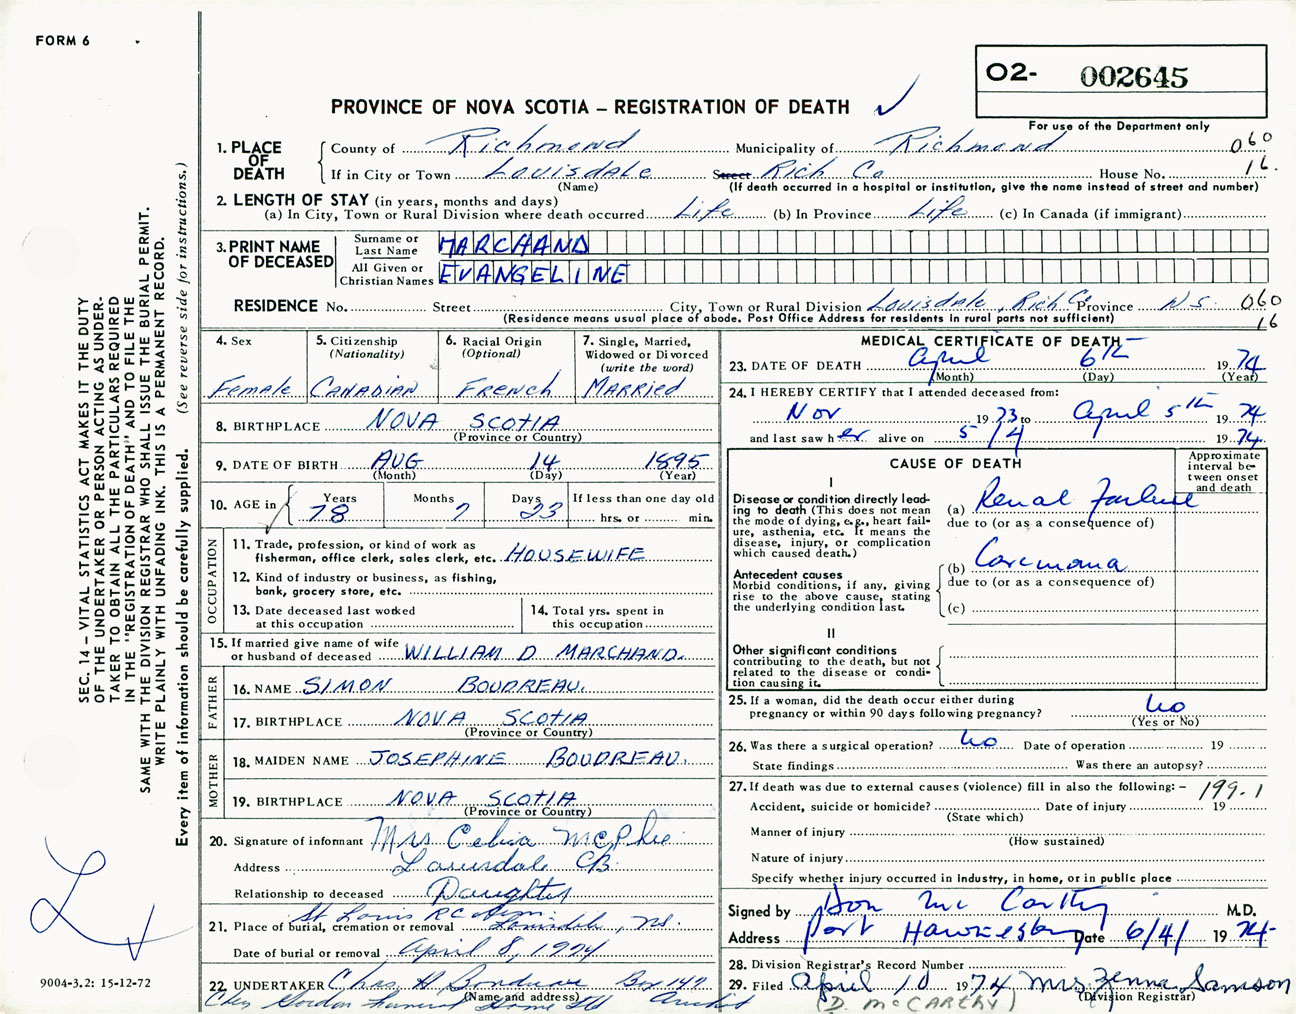 FORM 6
02- 002645
PROVINCE OF NOVA SCOTIA – REGISTRATION OF DEATH
For use of the Department only
1. PLACE OF DEATH
County of Richmond Municipality of Richmond 060
If in City or Town Louisdale Street Rich Co House No. 16.
(Name) (If death occurred in a hospital or institution, give the name instead of street and number)
2. LENGTH OF STAY (in years, months and days)
(a) In City, Town or Rural Division where death occurred Life (b) In Province Life (c) In Canada (if immigrant)
3. PRINT NAME OF DECEASED
Surname or Last Name MARCHAND
All Given or Christian Names EVANGELINE
RESIDENCE No. Street City, Town or Rural Division Louisdale, Rich Co Province N.S. 060
(Residence means usual place of abode. Post Office Address for residents in rural parts not sufficient) 16
4. Sex Female
5. Citizenship (Nationality) CANADIAN
6. Racial Origin (Optional) FRENCH
7. Single, Married, Widowed or Divorced (write the word) MARRIED
8. BIRTHPLACE NOVA SCOTIA
(Province or Country)
9. DATE OF BIRTH AUG 14 1895
(Month) (Day) (Year)
10. AGE in Years 78 Months 7 Days 23 If less than one day old hrs. or min.
OCCUPATION
11. Trade, profession, or kind of work as fisherman, office clerk, sales clerk, etc. HOUSEWIFE
12. Kind of industry or business, as fishing, bank, grocery store, etc.
13. Date deceased last worked at this occupation
14. Total yrs. spent in this occupation
15. If married give name of wife or husband of deceased WILLIAM D MARCHAND.
FATHER
16. NAME SIMON BOUDREAU.
17. BIRTHPLACE NOVA SCOTIA
(Province or Country)
MOTHER
18. MAIDEN NAME JOSEPHINE BOUDREAU.
19. BIRTHPLACE NOVA SCOTIA
(Province or Country)
20. Signature of informant Mrs Celina McPhee
Address Louisdale CB.
Relationship to deceased Daughter
21. Place of burial, cremation or removal St Louis RC Louisdale, NS.
Date of burial or removal April 8, 1974
22. UNDERTAKER Chas H Box 147
(Name and address)
Chas Gordon Funeral Home Ltd Arichat
MEDICAL CERTIFICATE OF DEATH
23. DATE OF DEATH April 6th 1974
(Month) (Day) (Year)
24. I HEREBY CERTIFY that I attended deceased from:
Nov 1973 to April 5th 1974
and last saw her alive on 5/4 1974.
CAUSE OF DEATH
Approximate interval between onset and death
I
Disease or condition directly leading to death (This does not mean the mode of dying, e.g., heart failure, asthenia, etc. It means the disease, injury, or complication which caused death.)
(a) Renal Failure
due to (or as a consequence of)
Antecedent causes
Morbid conditions, if any, giving rise to the above cause, stating the underlying condition last.
(b) Carcinoma
due to (or as a consequence of)
(c)
II
Other significant conditions
contributing to the death, but not related to the disease or condition causing it.
25. If a woman, did the death occur either during pregnancy or within 90 days following pregnancy? No
(Yes or No)
26. Was there a surgical operation? No Date of operation 19
State findings Was there an autopsy?
27. If death was due to external causes (violence) fill in also the following: – 199.1
Accident, suicide or homicide? Date of injury 19
(State which)
Manner of injury
(How sustained)
Nature of injury
Specify whether injury occurred in industry, in home, or in public place
Signed by Don Mc Carthy M.D.
Address Port Hawkesbury Date 6/4/ 1974
28. Division Registrar's Record Number
29. Filed April 10 1974 Mrs Zenna Samson
(D. McCARTHY) (Division Registrar)
SEC. 14 – VITAL STATISTICS ACT MAKES IT THE DUTY
OF THE UNDERTAKER OR PERSON ACTING AS UNDER-
TAKER TO OBTAIN ALL THE PARTICULARS REQUIRED
IN THE "REGISTRATION OF DEATH" AND TO FILE THE
SAME WITH THE DIVISION REGISTRAR WHO SHALL ISSUE THE BURIAL PERMIT.
WRITE PLAINLY WITH UNFADING INK. THIS IS A PERMANENT RECORD.
Every item of information should be carefully supplied. (See reverse side for instructions.)
9004-3.2: 15-12-72